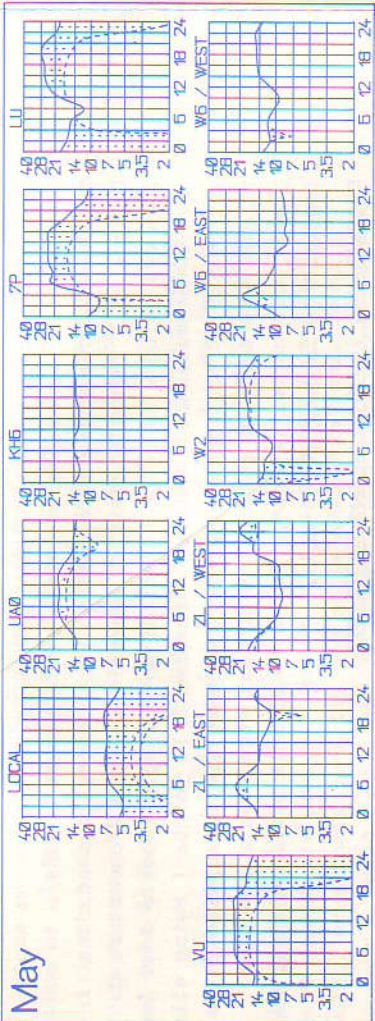 May
LOCAL
40
28
21
14
10
7
5
3.5
2
0 6 12 18 24
UAØ
40
28
21
14
10
7
5
3.5
2
0 6 12 18 24
KH6
40
28
21
14
10
7
5
3.5
2
0 6 12 18 24
7P
40
28
21
14
10
7
5
3.5
2
0 6 12 18 24
LU
40
28
21
14
10
7
5
3.5
2
0 6 12 18 24
VU
40
28
21
14
10
7
5
3.5
2
0 6 12 18 24
ZL / EAST
40
28
21
14
10
7
5
3.5
2
0 6 12 18 24
ZL / WEST
40
28
21
14
10
7
5
3.5
2
0 6 12 18 24
W2
40
28
21
14
10
7
5
3.5
2
0 6 12 18 24
W6 / EAST
40
28
21
14
10
7
5
3.5
2
0 6 12 18 24
W6 / WEST
40
28
21
14
10
7
5
3.5
2
0 6 12 18 24